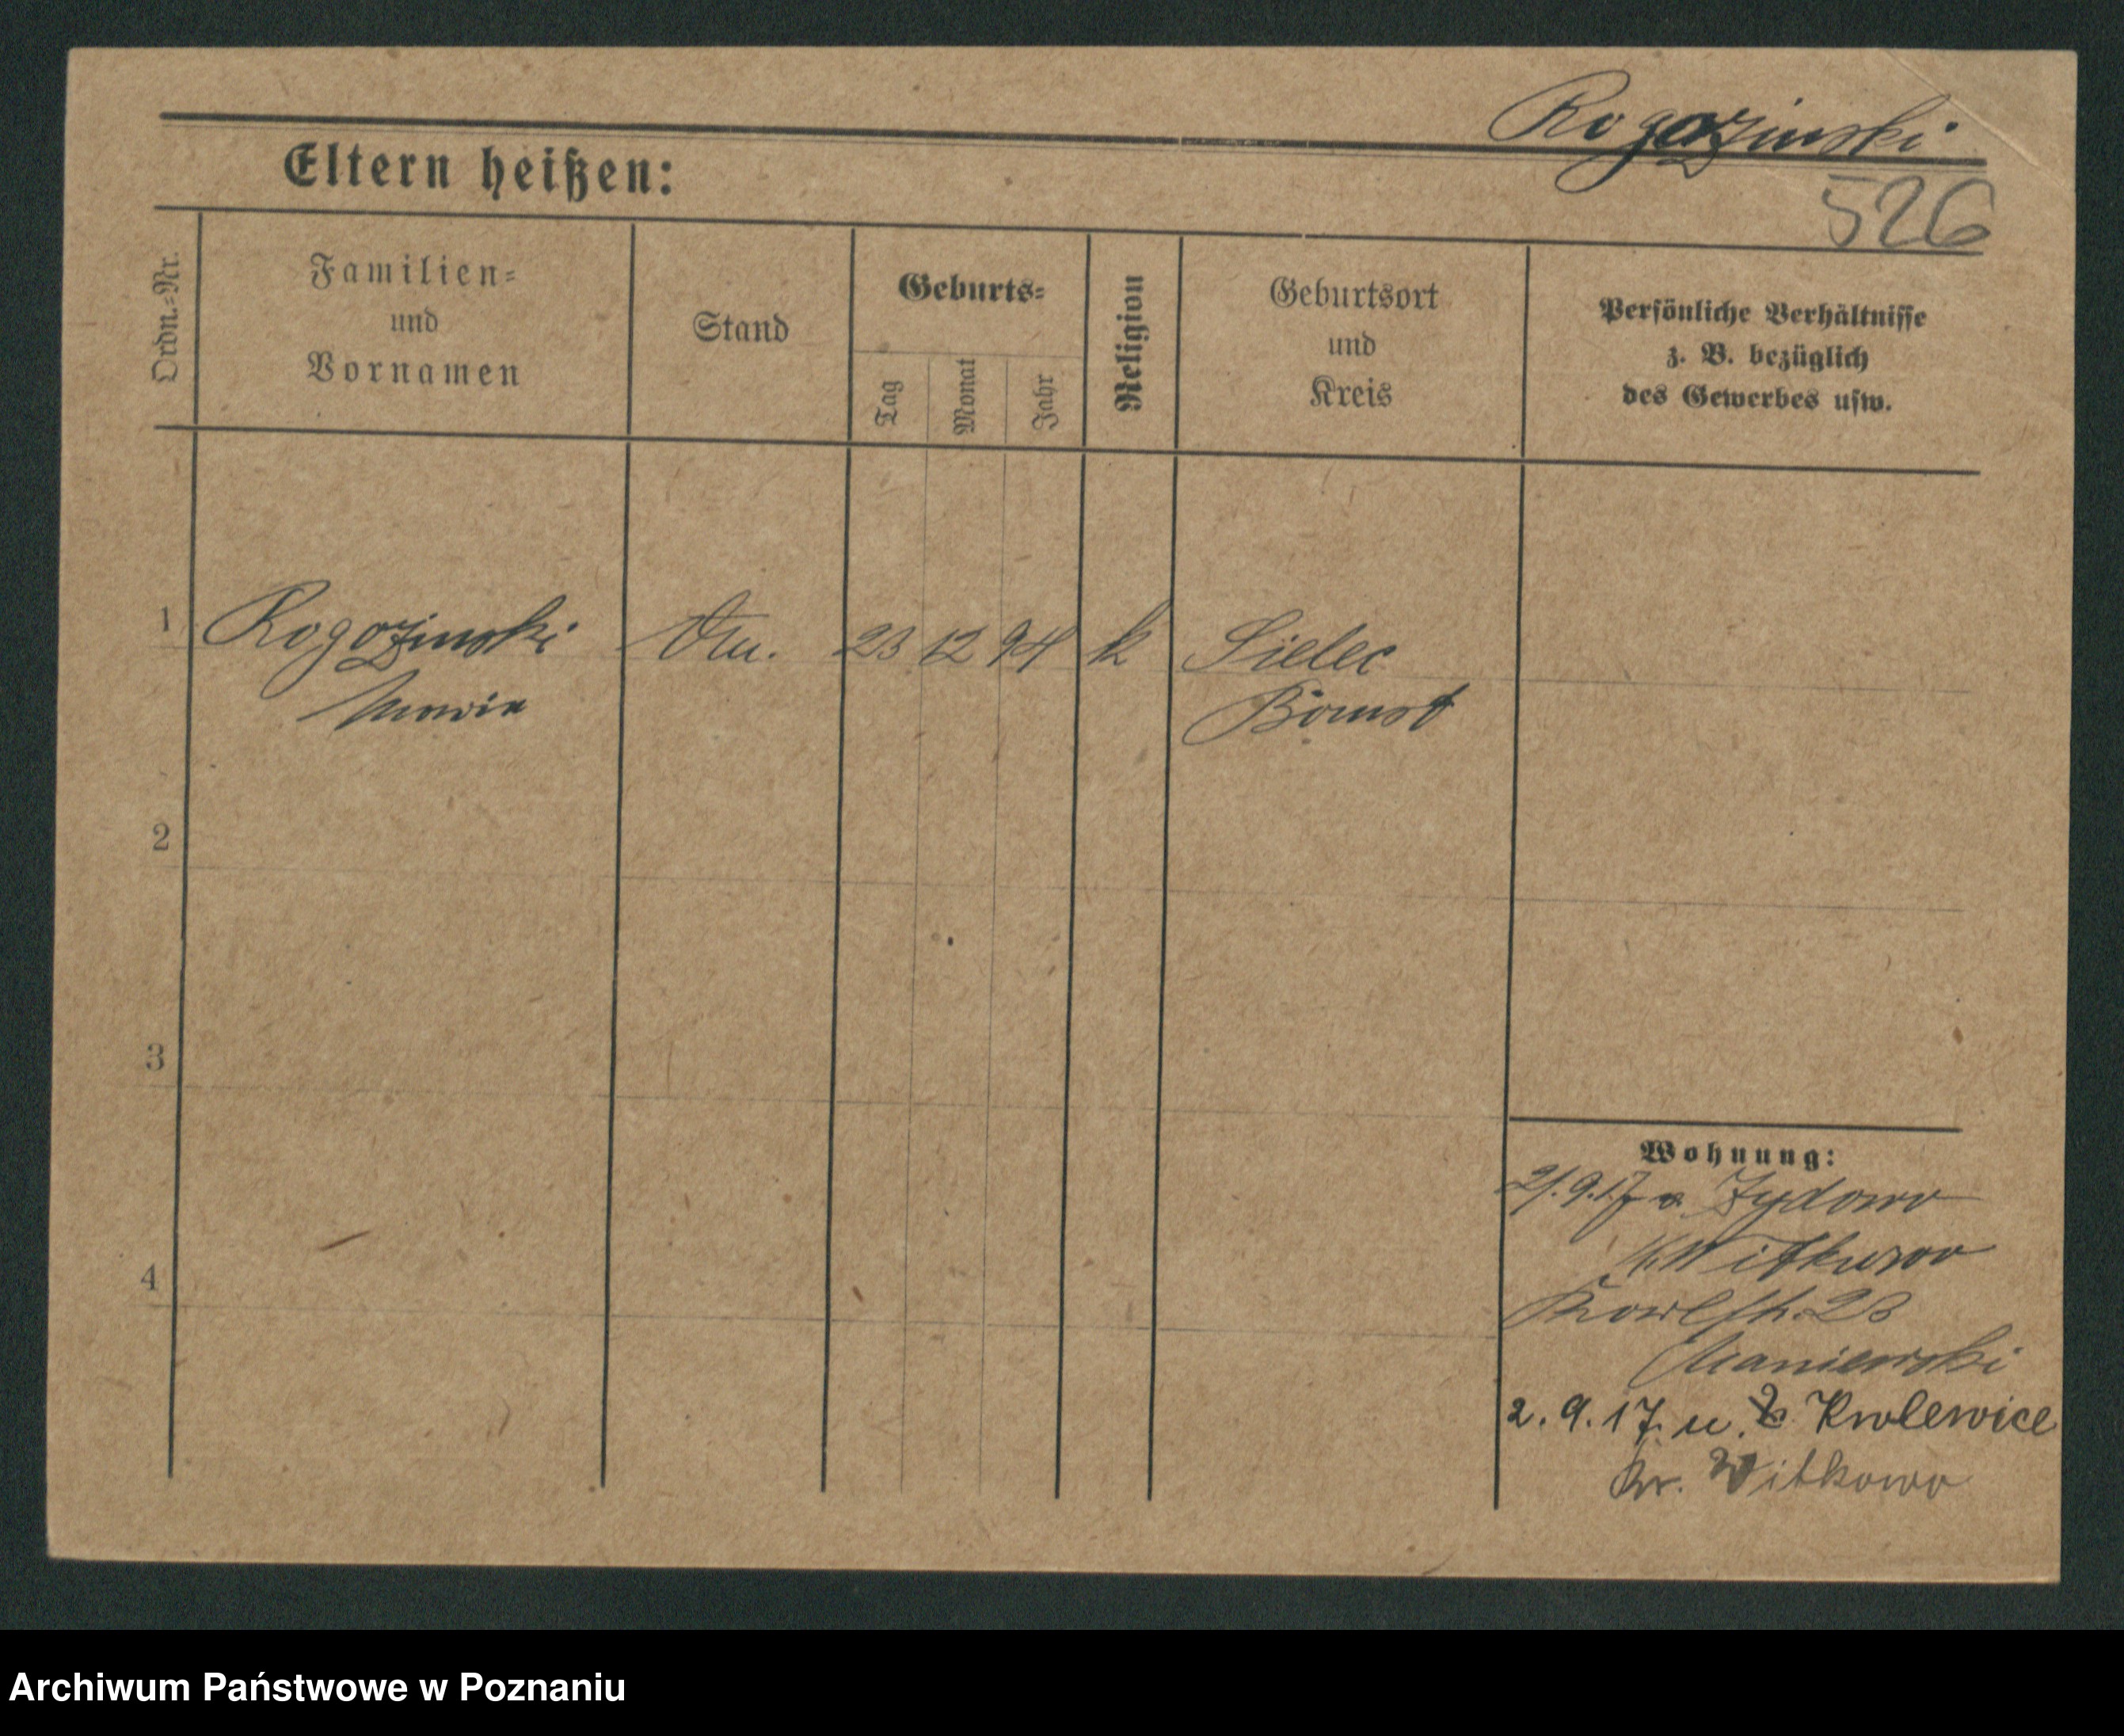 Rogozinski
Eltern heißen:
526
Ordn.=Nr.
Familien=
und
Vornamen
Stand
Geburts=
Tag
Monat
Jahr
Religion
Geburtsort
und
Kreis
Persönliche Verhältnisse
z. B. bezüglich
des Gewerbes usw.
1
Rogozinski
23 12 94 k
Sielec
Maria
Bomst
2
3
4
Wohnung:
2/.9.17 v. Zydowo
Witkowo
23
Maniewski
2. 9. 17. u. Krolewice
Kr. Witkowo
Archiwum Państwowe w Poznaniu